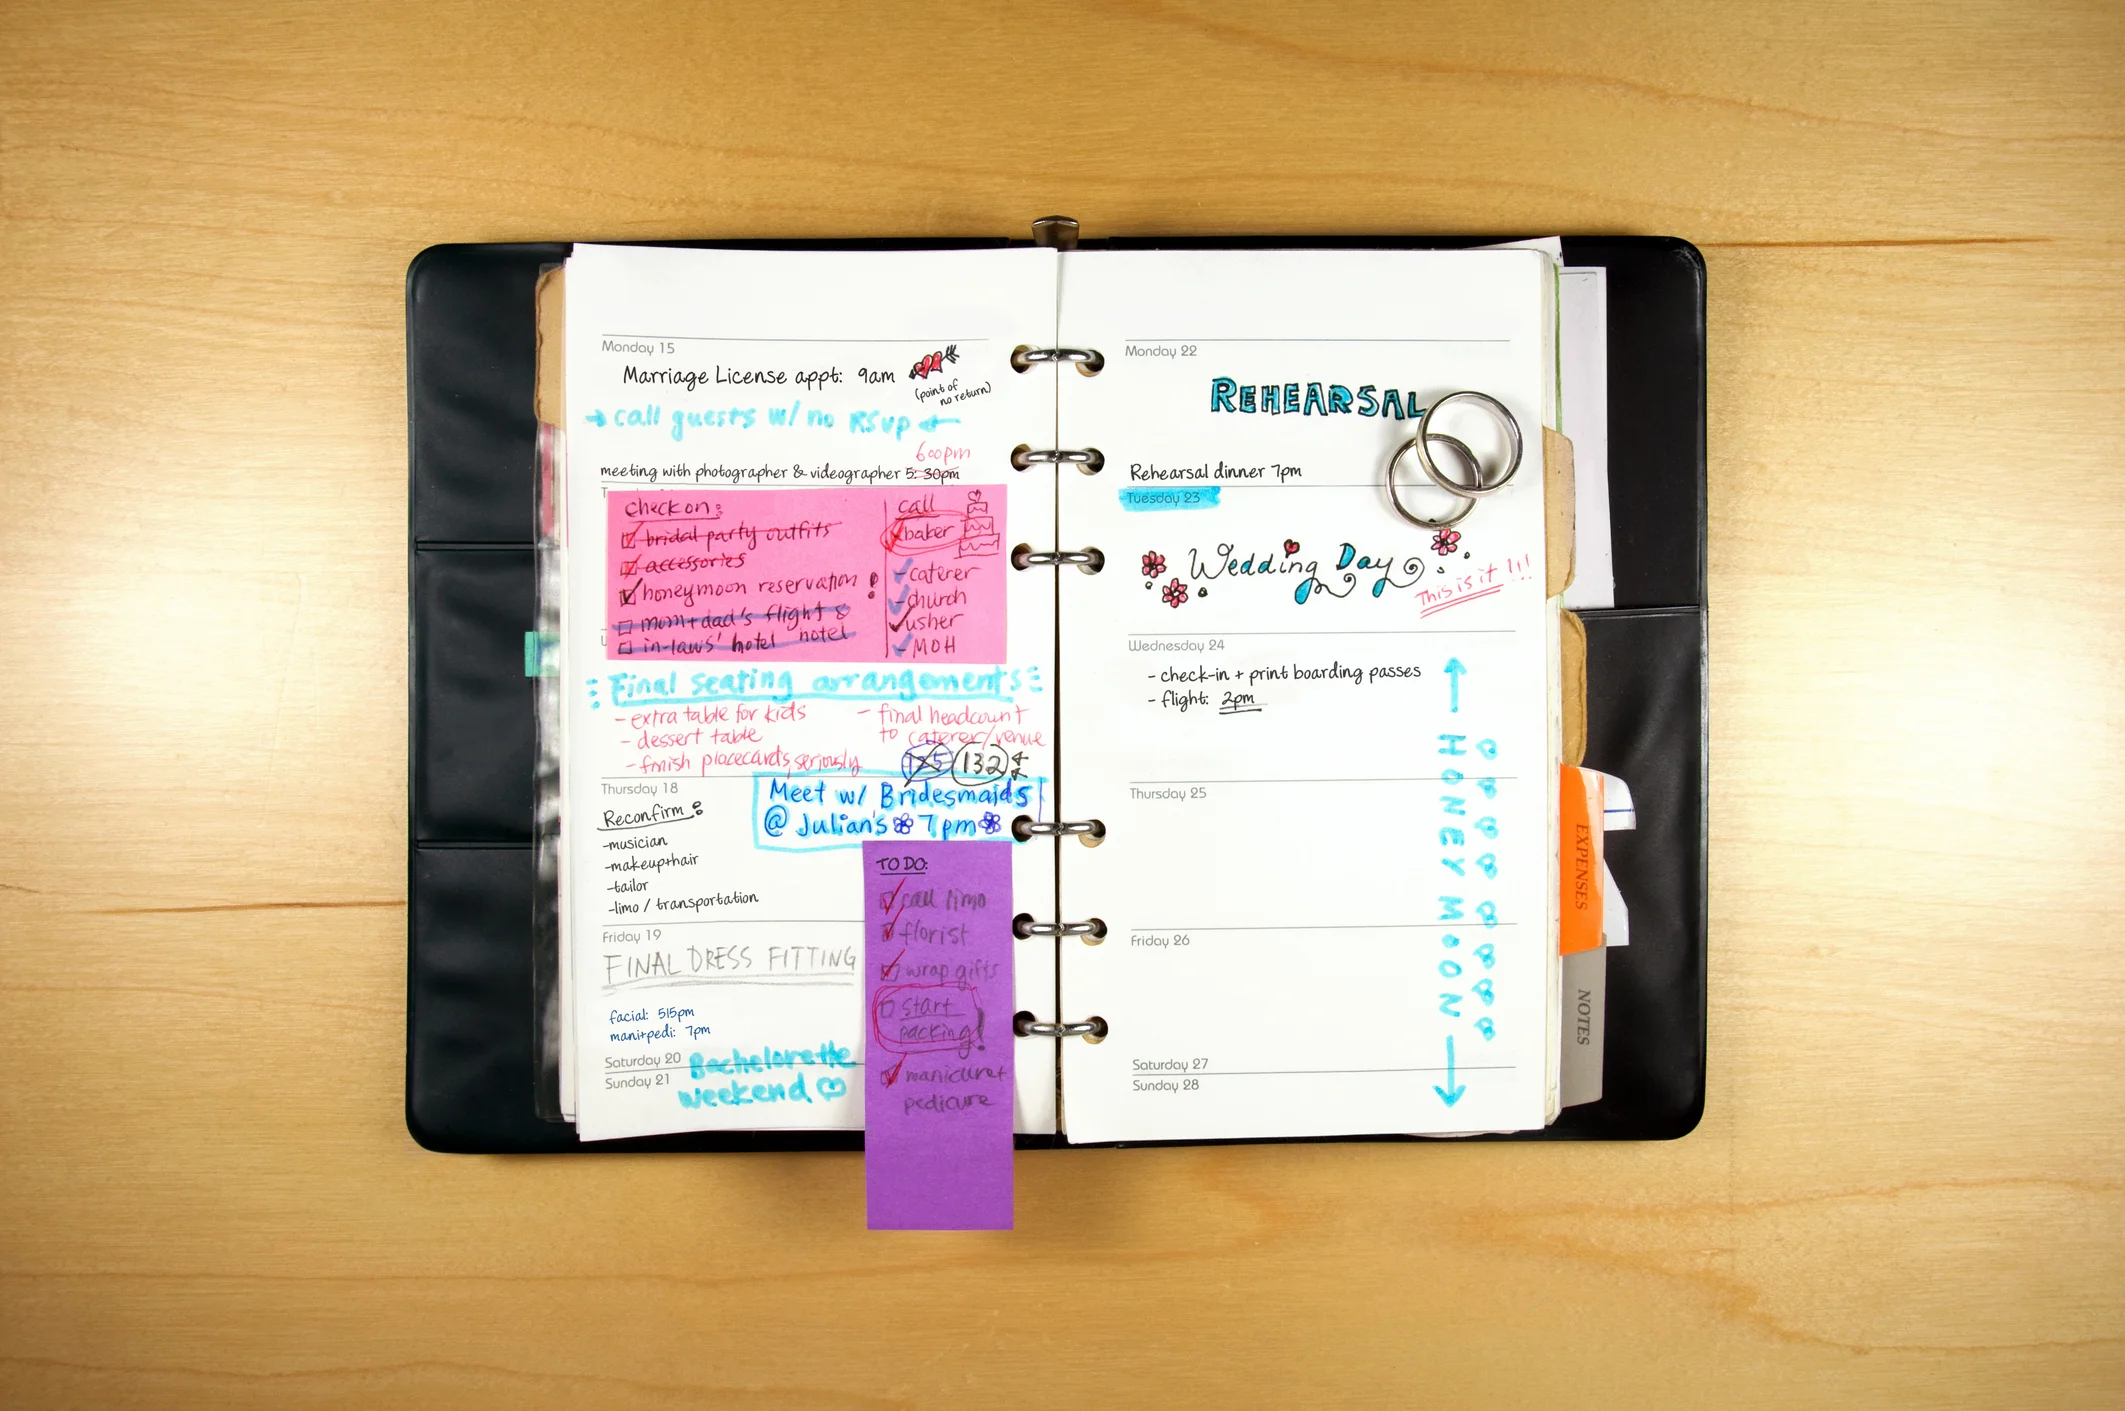 Monday 15
Marriage License appt: 9am
(point of
no return)
call guests w/ no RSVP
600pm
meeting with photographer & videographer 5:30pm
check on:
bridal party outfits
accessories
honeymoon reservation !
mom+dad's flight &
in-laws' hotel hotel
call
baker
- caterer
- church
usher
- MOH
Final seating arrangements
- extra table for kids
- dessert table
- finish placecards, seriously
- final headcount
to caterer/venue
125 132
Thursday 18
Reconfirm:
-musician
-makeup+hair
-tailor
-limo / transportation
Meet w/ Bridesmaids
@ Julian's 7pm
TO DO:
call limo
florist
wrap gifts
start
packing!
manicure+
pedicure
Friday 19
FINAL DRESS FITTING
facial: 515pm
mani+pedi: 7pm
Saturday 20
Sunday 21
Bachelorette
weekend
Monday 22
REHEARSAL
Rehearsal dinner 7pm
Tuesday 23
Wedding Day
This is it !!!
Wednesday 24
- check-in + print boarding passes
- flight: 2pm
HONEY MOON
Thursday 25
Friday 26
Saturday 27
Sunday 28
EXPENSES
NOTES